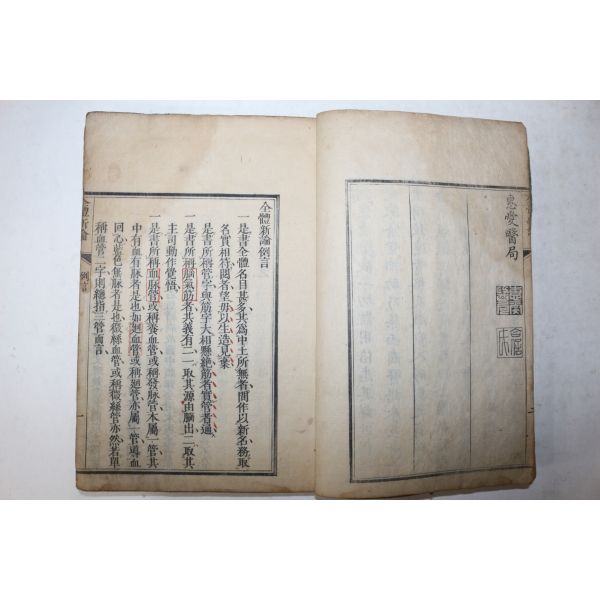 惠愛醫局
全體新論例言
一是書全體名目甚多其爲中土所無者間作以新名務取
名實相符閱者望毋以生造見棄
一是書所稱管字與筋字大相縣絶筋者實管者通
一是書所稱腦氣筋者其義有二一取其源由腦出二取其
主司動作覺悟
一是書所稱血脉管或稱養血管或稱發脉管本屬一管其
中有血有脉者是也如廻血管或稱廻管亦屬一管導血
回心藍色無脉者是也微絲血管或稱微絲管亦然若單
稱血管二字則總指三管而言
全體新論
例言